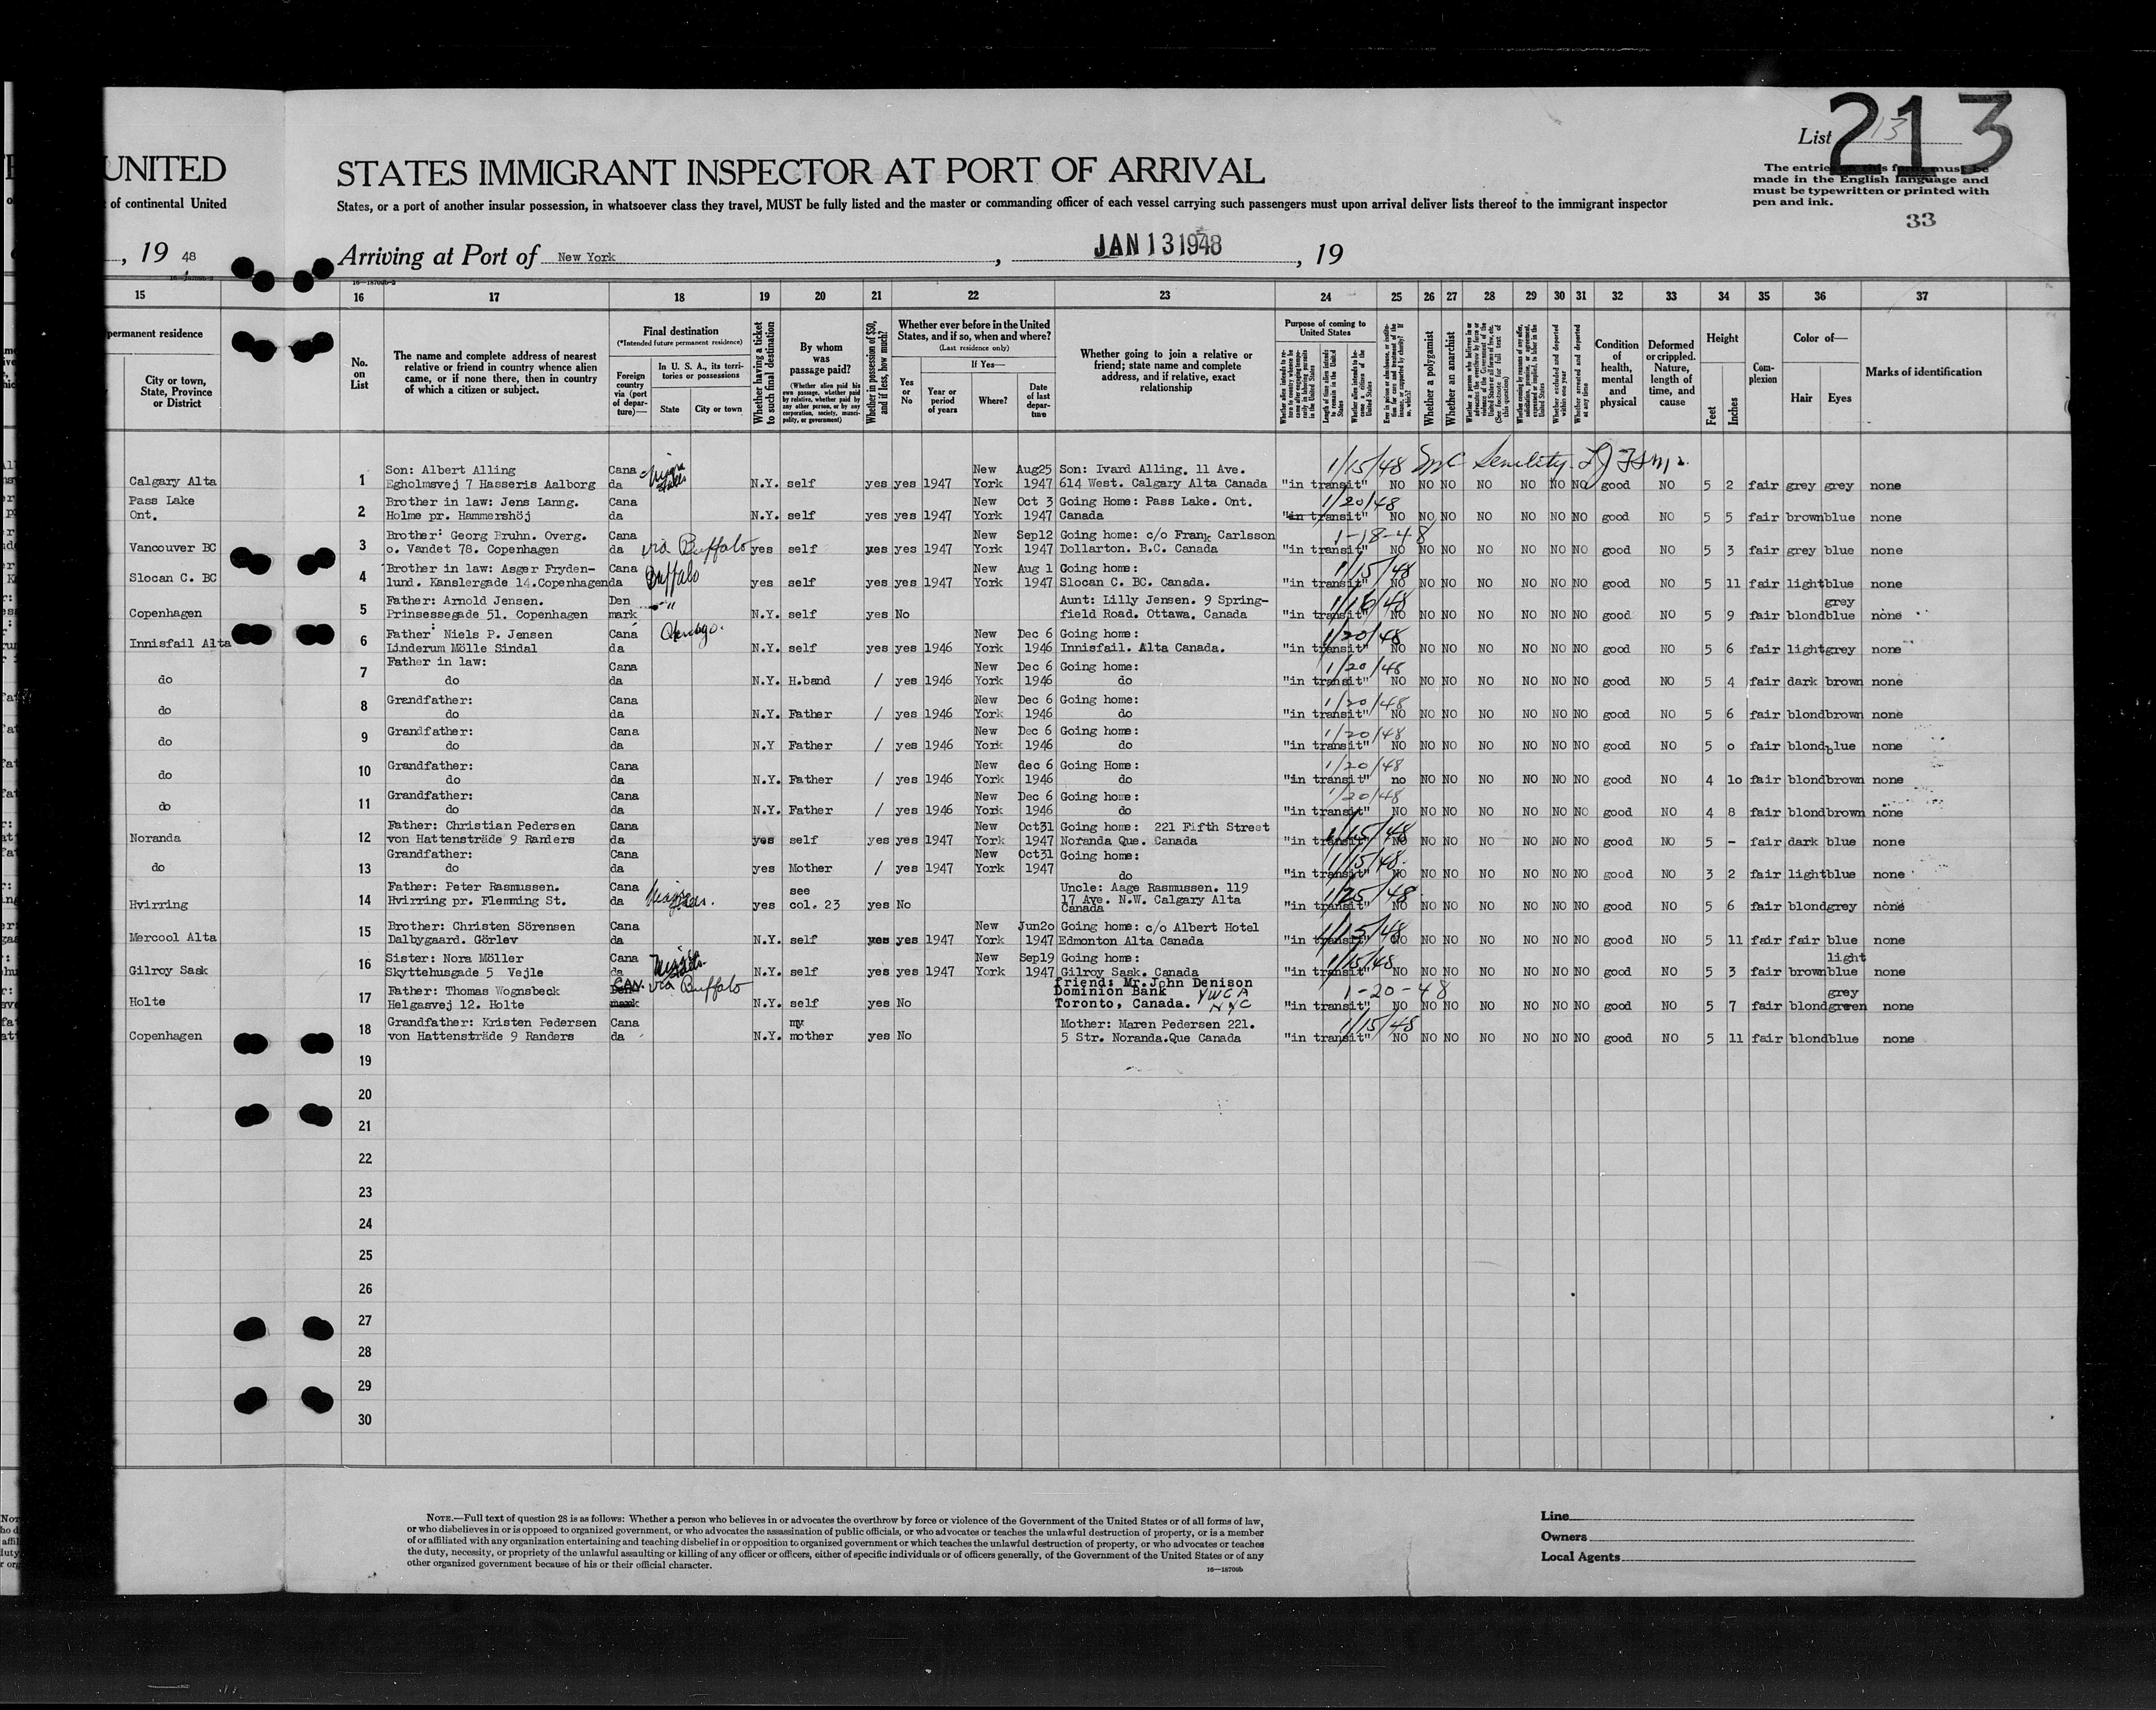 213
List 13
UNITED STATES IMMIGRANT INSPECTOR AT PORT OF ARRIVAL
The entries on this form must be
made in the English language and
must be typewritten or printed with
pen and ink.
of continental United States, or a port of another insular possession, in whatsoever class they travel, MUST be fully listed and the master or commanding officer of each vessel carrying such passengers must upon arrival deliver lists thereof to the immigrant inspector
33
, 19 48 Arriving at Port of New York , JAN 13 1948 , 19
15 16 17 18 19 20 21 22 23 24 25 26 27 28 29 30 31 32 33 34 35 36 37
permanent residence
City or town, State, Province or District
No. on List
The name and complete address of nearest relative or friend in country whence alien came, or if none there, then in country of which a citizen or subject.
Final destination
(*Intended future permanent residence)
Foreign country via (port of departure)—
In U. S. A., its territories or possessions
State City or town
Whether having a ticket to such final destination
By whom was passage paid?
(Whether alien paid his own passage, whether paid by relative, whether paid by any other person, or by any corporation, society, municipality, or government)
Whether in possession of $50, and if less, how much?
Whether ever before in the United States, and if so, when and where?
(Last residence only)
Yes or No
If Yes—
Year or period of years
Where?
Date of last departure
Whether going to join a relative or friend; state name and complete address, and if relative, exact relationship
Purpose of coming to United States
Length of time alien intends to remain in the United States
Whether alien intends to become a citizen of the United States
Whether a polygamist
Whether an anarchist
Whether excluded and deported within one year
Whether arrested and deported at any time
Condition of health, mental and physical
Deformed or crippled. Nature, length of time, and cause
Height
Feet Inches
Complexion
Color of—
Hair Eyes
Marks of identification
1/15/48 Senility
Son: Albert Alling Cana New Aug25 Son: Ivard Alling. 11 Ave.
Calgary Alta 1 Egholmsvej 7 Hasseris Aalborg da N.Y. self yes yes 1947 York 1947 614 West. Calgary Alta Canada "in transit" NO NO NO NO NO NO NO good NO 5 2 fair grey grey none
Pass Lake Brother in law: Jens Lanng. Cana New Oct 3 Going Home: Pass Lake. Ont. 1/20/48
Ont. 2 Holme pr. Hammershöj da N.Y. self yes yes 1947 York 1947 Canada "in transit" NO NO NO NO NO NO NO good NO 5 5 fair brown blue none
Brother: Georg Bruhn. Overg. Cana New Sep12 Going home: c/o Frank Carlsson 1-18-48
Vancouver BC 3 o. Vandet 78. Copenhagen da via Buffalo yes self yes yes 1947 York 1947 Dollarton. B.C. Canada "in transit" NO NO NO NO NO NO NO good NO 5 3 fair grey blue none
Brother in law: Asger Fryden- Cana Buffalo New Aug 1 Going home: 1/15/48
Slocan C. BC 4 lund. Kanslergade 14. Copenhagen da yes self yes yes 1947 York 1947 Slocan C. BC. Canada. "in transit" NO NO NO NO NO NO NO good NO 5 11 fair light blue none
Father: Arnold Jensen. Den " Aunt: Lilly Jensen. 9 Spring- 1/16/48 grey
Copenhagen 5 Prinsessegade 51. Copenhagen mark N.Y. self yes No field Road. Ottawa. Canada "in transit" NO NO NO NO NO NO NO good NO 5 9 fair blond blue none
Father: Niels P. Jensen Cana Chicago. New Dec 6 Going home: 1/20/48
Innisfail Alta 6 Linderum Mölle Sindal da N.Y. self yes yes 1946 York 1946 Innisfail. Alta Canada. "in transit" NO NO NO NO NO NO NO good NO 5 6 fair light grey none
Father in law: Cana New Dec 6 Going home: 1/20/48
do 7 do da N.Y. H.band / yes 1946 York 1946 do "in transit" NO NO NO NO NO NO NO good NO 5 4 fair dark brown none
Grandfather: Cana New Dec 6 Going home: 1/20/48
do 8 do da N.Y. Father / yes 1946 York 1946 do "in transit" NO NO NO NO NO NO NO good NO 5 6 fair blond brown none
Grandfather: Cana New Dec 6 Going home: 1/20/48
do 9 do da N.Y Father / yes 1946 York 1946 do "in transit" NO NO NO NO NO NO NO good NO 5 o fair blond blue none
Grandfather: Cana New dec 6 Going Home: 1/20/48
do 10 do da N.Y. Father / yes 1946 York 1946 do "in transit" no NO NO NO NO NO NO good NO 4 1o fair blond brown none
Grandfather: Cana New Dec 6 Going home: 1/20/48
do 11 do da N.Y. Father / yes 1946 York 1946 do "in transit" NO NO NO NO NO NO NO good NO 4 8 fair blond brown none
Father: Christian Pedersen Cana New Oct31 Going home: 221 Fifth Street 1/15/48
Noranda 12 von Hattensträde 9 Randers da yes self yes yes 1947 York 1947 Noranda Que. Canada "in transit" NO NO NO NO NO NO NO good NO 5 - fair dark blue none
Grandfather: Cana New Oct31 Going home: 1/15/48.
do 13 do da yes Mother / yes 1947 York 1947 do "in transit" NO NO NO NO NO NO NO good NO 3 2 fair light blue none
Father: Peter Rasmussen. Cana see Uncle: Aage Rasmussen. 119 1/25/48
Hvirring 14 Hvirring pr. Flemming St. da yes col. 23 yes No 17 Ave. N.W. Calgary Alta Canada "in transit" NO NO NO NO NO NO NO good NO 5 6 fair blond grey none
Brother: Christen Sörensen Cana New Jun2o Going home: c/o Albert Hotel 1/15/48
Mercool Alta 15 Dalbygaard. Görlev da N.Y. self yes yes 1947 York 1947 Edmonton Alta Canada "in transit" NO NO NO NO NO NO NO good NO 5 11 fair fair blue none
Sister: Nora Möller Cana New Sep19 Going home: 1/15/48 light
Gilroy Sask 16 Skyttehusgade 5 Vejle da N.Y. self yes yes 1947 York 1947 Gilroy Sask. Canada "in transit" NO NO NO NO NO NO NO good NO 5 3 fair brown blue none
Father: Thomas Wognsbeck CAN. via Buffalo friend: Mr. John Denison Dominion Bank YWCA 1-20-48 grey
Holte 17 Helgasvej 12. Holte mark N.Y. self yes No Toronto, Canada. NYC "in transit" NO NO NO NO NO NO NO good NO 5 7 fair blond green none
Grandfather: Kristen Pedersen Cana my Mother: Maren Pedersen 221. 1/15/48
Copenhagen 18 von Hattensträde 9 Randers da N.Y. mother yes No 5 Str. Noranda.Que Canada "in transit" NO NO NO NO NO NO NO good NO 5 11 fair blond blue none
19
20
21
22
23
24
25
26
27
28
29
30
NOTE.—Full text of question 28 is as follows: Whether a person who believes in or advocates the overthrow by force or violence of the Government of the United States or of all forms of law,
or who disbelieves in or is opposed to organized government, or who advocates the assassination of public officials, or who advocates or teaches the unlawful destruction of property, or is a member
of or affiliated with any organization entertaining and teaching disbelief in or opposition to organized government or which teaches the unlawful destruction of property, or who advocates or teaches
the duty, necessity, or propriety of the unlawful assaulting or killing of any officer or officers, either of specific individuals or of officers generally, of the Government of the United States or of any
other organized government because of his or their official character.
16—18709b
Line
Owners
Local Agents